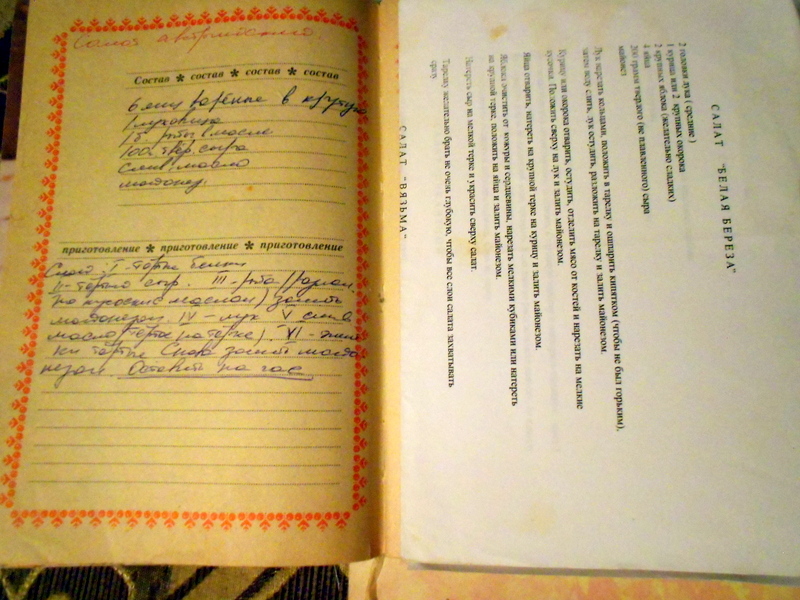 Состав ✷ состав ✷ состав ✷ состав
6 яиц варёные в крутую
1 луковица
в масле
100г. твёр. сыра
слив. масло
майонез.
приготовление ✷ приготовление ✷ приготовление
I - тёртые белки
II - тёртый сыр. III - рыба
кусочки маслом) залить
майонезом. IV - лук V слив.
масло тёрка). VI -
тёртые Снова залить майо
незом Оставить на час
САЛАТ "БЕЛАЯ БЕРЕЗА"
2 головки лука ( средние )
1 курица или 2 крупных окорока
2 крупных яблока (желательно сладких)
4 яйца
200 грамм твердого (не плавленного) сыра
майонез
Лук нарезать кольцами, положить в тарелку и ошпарить кипятком (чтобы не был горьким).
затем воду слить, лук остудить, разложить на тарелку и залить майонезом.
Курицу или окорока отварить, остудить, отделить мясо от костей и нарезать на мелкие
кусочки. Положить сверху на лук и залить майонезом.
Яйца отварить, натереть на крупной терке на курицу и залить майонезом.
Яблоки очистить от кожуры и сердцевины, нарезать мелкими кубиками или натереть
на крупной терке, положить на яйца и залить майонезом.
Натереть сыр на мелкой терке и украсить сверху салат.
Тарелку желательно брать не очень глубокую, чтобы все слои салата захватывать
сразу.
САЛАТ "ВЯЗЬМА"